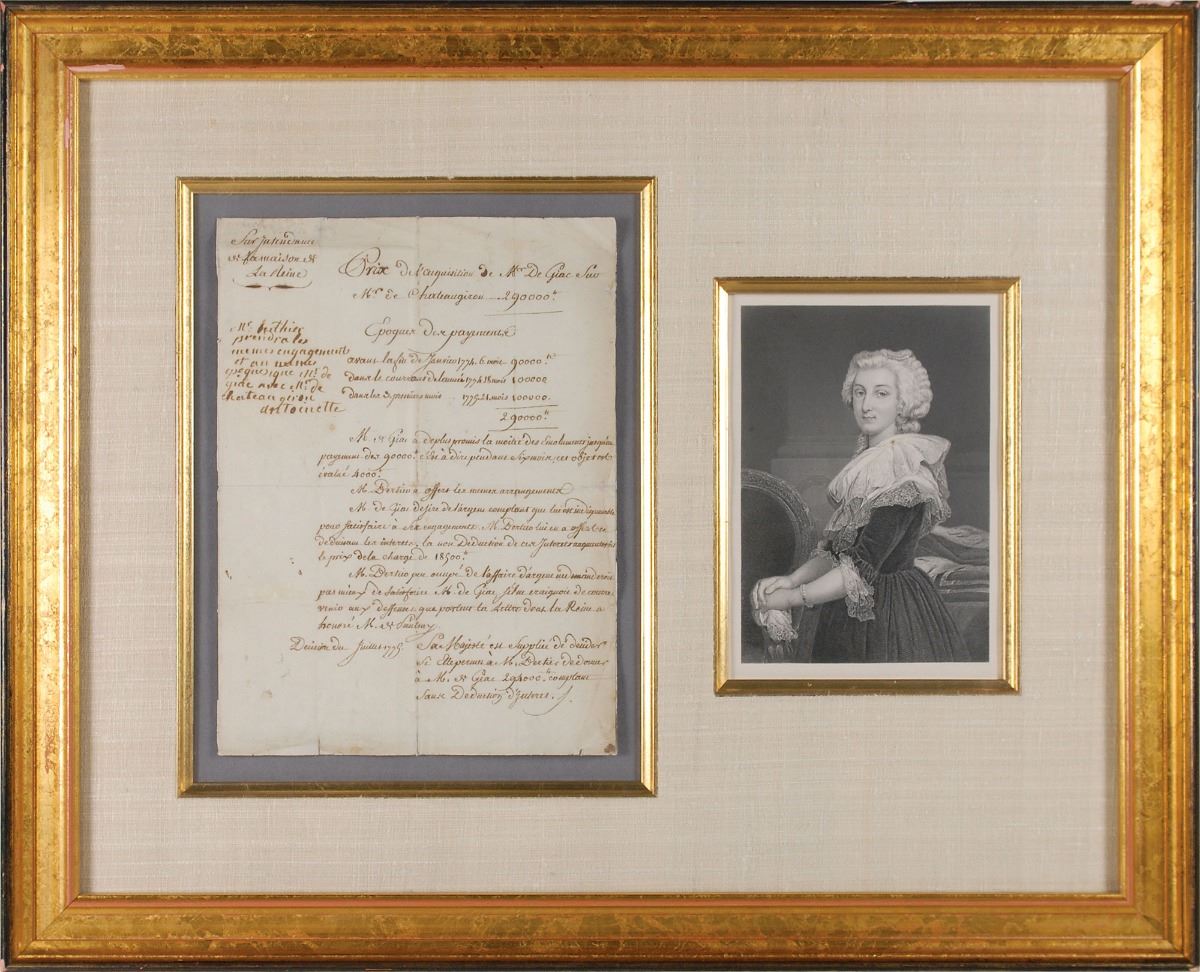 Sur Intendance
de la maison de
La Reine
Prix de l'acquisition de Mr. De Giac Sur
Mr. de Chateaugiron 290000.tt
Mr. berthier
prendra les
memes engagements
et au memes
époques que Mr. de
giac avec Mr. de
chateaugiron
antoinette
Epoques des payements
avant la fin de Janvier 1774. 6. mois 90000.tt
dans le courant de l'année 1774. 18 mois 100000
dans les 3. premiers mois 1775. 21. mois 100000.
290000.tt
M. de Giac a deplus promis la moitié des Emoluments jusqu'au
payement des 90000.tt C'est à dire pendant Six mois, cet objet est
évalué 4000.tt
M. Bertier a offert les memes arrangements
M. de Giac desire de l'argent comptant qui lui est indispensable
pour satisfaire à ses engagements. M. Bertier lui en a offert en
deduisant les interets, la non Deduction de ces Interets augmenteroit
le prix de la charge de 18500.tt
M. Bertier peu occupé de l'affaire d'argent ne demanderoit
pas mieux de satisfaire M. de Giac, s'il ne craignoit de contre
venir aux deffenses que portent la Lettre dont la Reine a
honoré M. de
Décision du Juillet 1775.
Sa Majesté est Suppliée de decider
Si Elle permet à M. Bertier de donner
à M. de Giac 294000.tt comptant
Sans Deduction d'Interets.